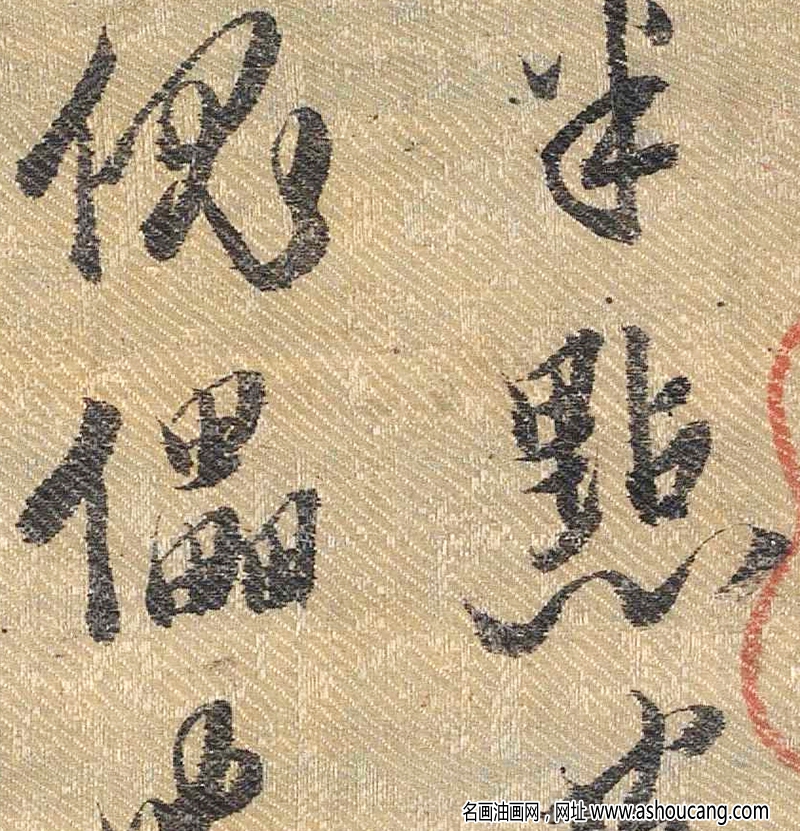 半點
傀儡
名画油画网，网址 www.ashoucang.com